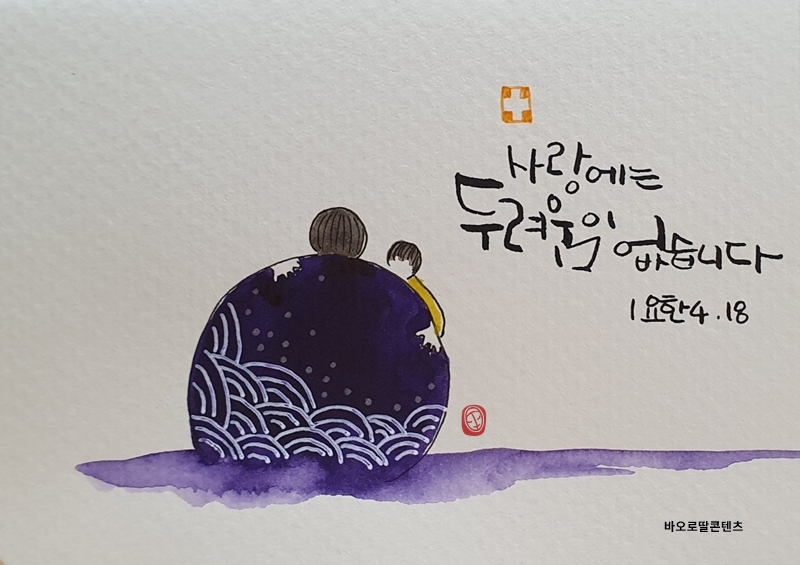 사랑에는
두려움이 없습니다
1요한4.18
바오로딸콘텐츠